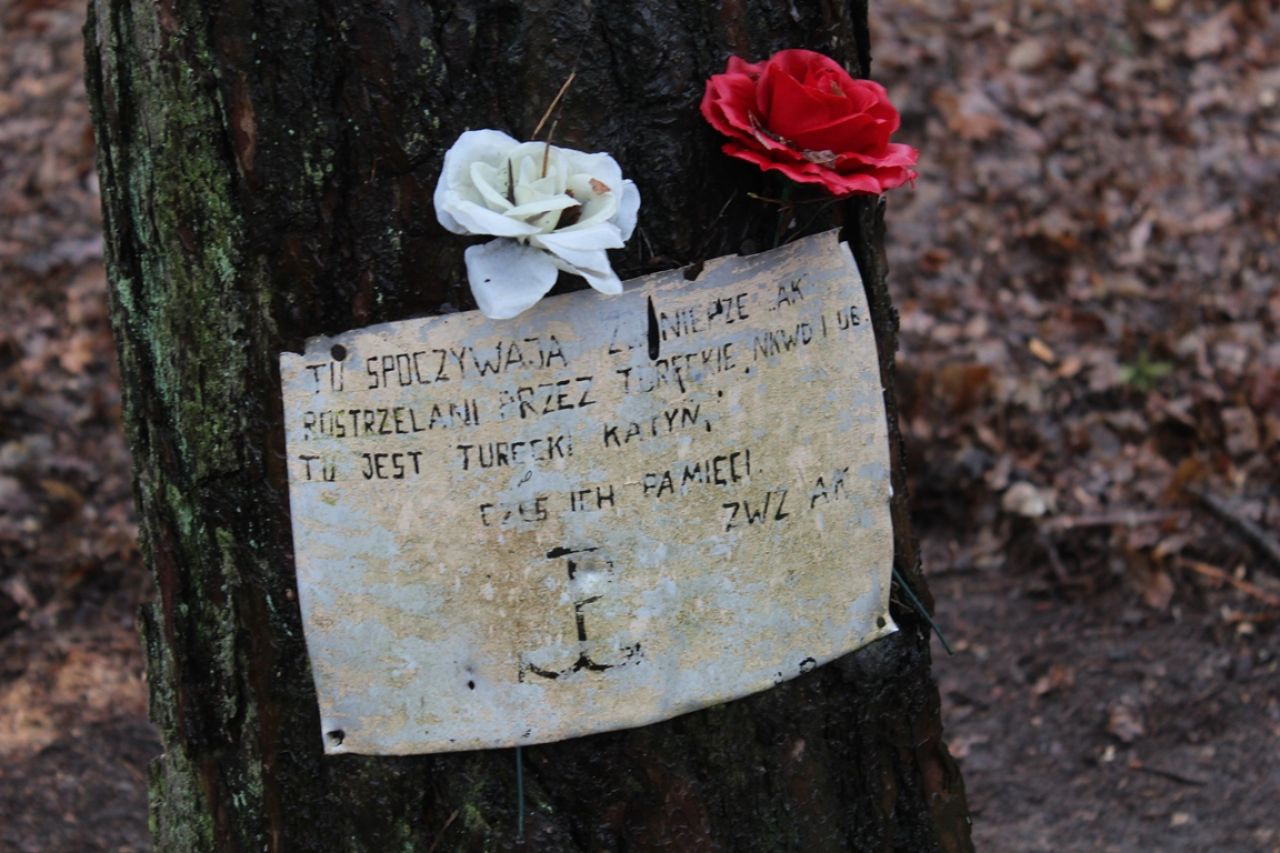 TU SPOCZYWAJA ŻOŁNIERZE AK
ROSTRZELANI PRZEZ TURECKIE NKWD I UB.
TU JEST TURECKI KATYŃ,
CZEŚ ICH PAMIĘCI.
ZWZ AK